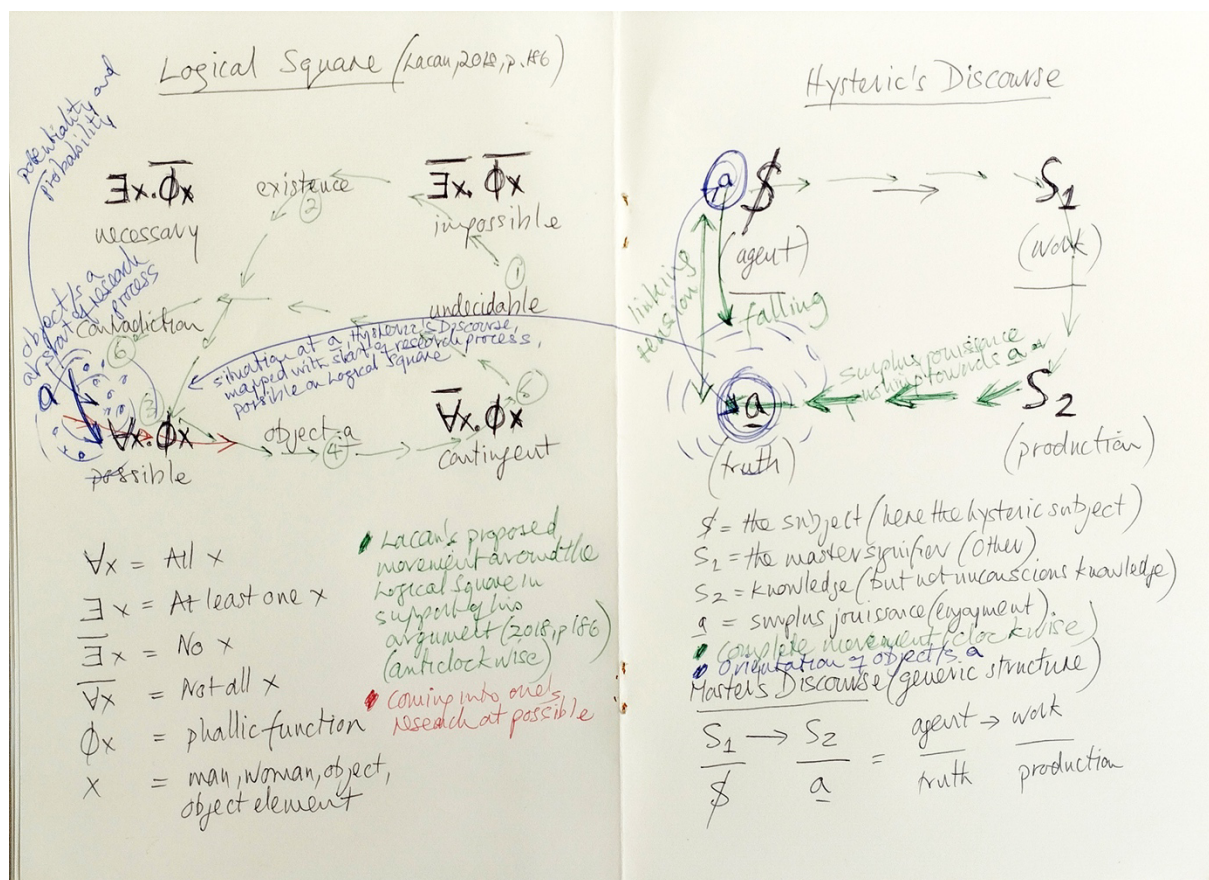 Logical Square (Lacan, 2018, p.186)
potentiality and
probability
∃x.Φ̅x̅
necessary
existence
②
∃̅x̅.Φ̅x̅
impossible
①
undecidable
object/s a
at start of research
process
contradiction
⑥
situation at a, Hysteric's Discourse,
mapped with start of research process,
possible on Logical Square
a
③
∀x.Φx
possible
object a
④
∀̅x̅.Φx
contingent
∀x = All x
∃x = At least one x
∃̅x̅ = No x
∀̅x̅ = Not all x
Φx = phallic function
x = man, woman, object,
object element
Lacan's proposed
movement around the
Logical Square in
support of his
argument (2018, p186)
(anticlockwise)
Coming into one's
research at possible
Hysteric's Discourse
a $ S₁
(agent) (work)
linking
tension
falling
surplus jouissance
pushing towards a
a S₂
(truth) (production)
$ = the subject (here the hysteric subject)
S₁ = the master signifier (Other)
S₂ = knowledge (but not unconscious knowledge)
a = surplus jouissance (enjoyment).
complete movement (clockwise)
Orientation of object/s a
Master's Discourse (generic structure)
S₁ → S₂ = agent → work
$ a truth production